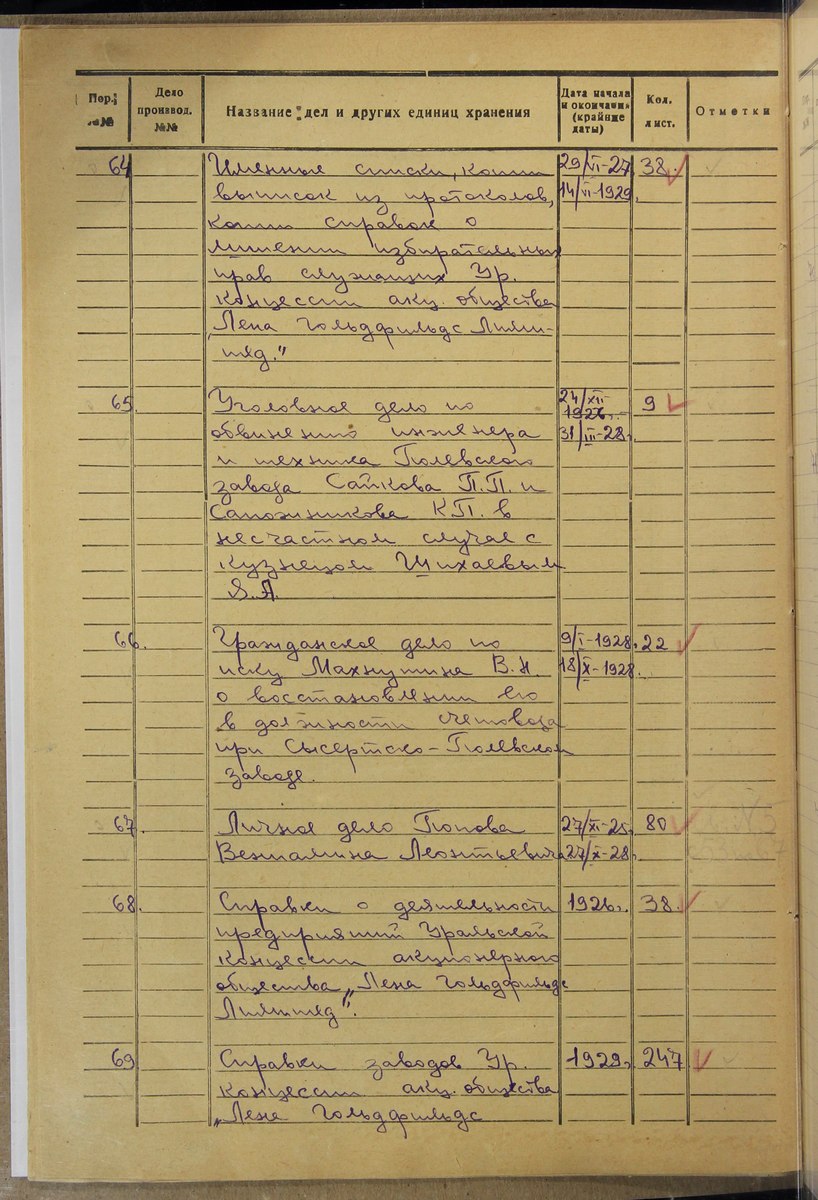 Пор. №№
Дело производ. №№
Название дел и других единиц хранения
Дата начала и окончания (крайние даты)
Кол. лист.
Отметки
64 Именные списки, копии 29/VI-27 38
выписок из протоколов, 14/VI-1929.
копии справок о
лишении избирательных
прав служащих Ур.
концессии акц. общества
„Лена Гольдфильдс Лими-
тед."
65. Уголовное дело по 24/XII 1926. 9
обвинению инженера 31/III-28.
и техника Полевского
завода Сайкова П.П. и
Сапожникова К.П. в
несчастном случае с
кузнецом Шихаевым
Я.А.
66. Гражданское дело по 9/I-1928. 22
иску Махнутина В.Н. 18/X-1928.
о восстановлении его
в должности счетовода
при Сысертско-Полевском
заводе.
67. Личное дело Попова 27/XI-25. 80
Вениамина Леонтьевича 27/X-28.
68. Справки о деятельности 1926. 38.
предприятий Уральской
концессии акционерного
общества „Лена Гольдфильдс
Лимитед".
69 Справки заводов Ур. 1929. 247
концессии акц. общества
„Лена Гольдфильдс